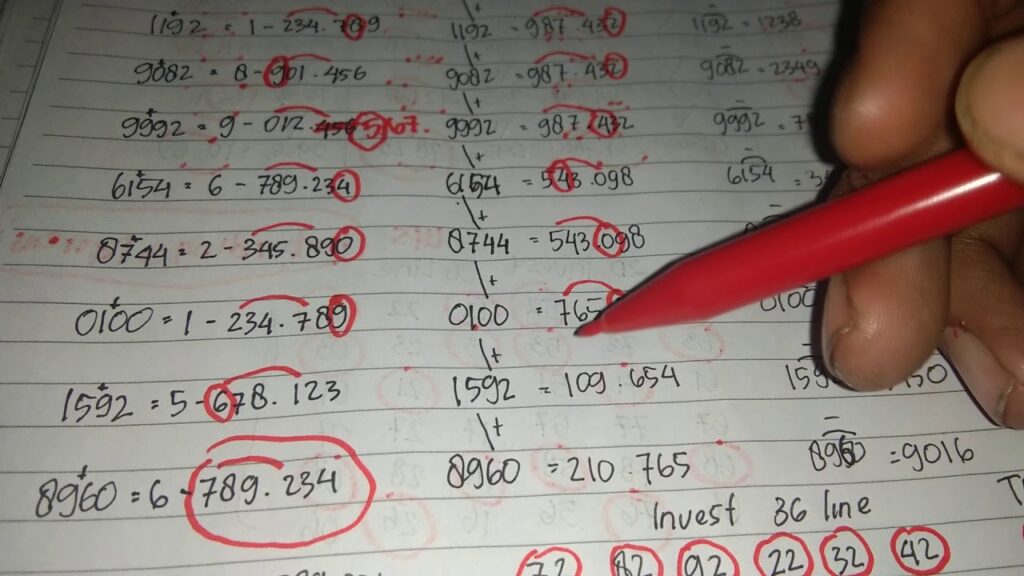 1192 = 1 - 234.789 1192 = 987.432 1192 = 1238
\+
9082 = 8 - 901.456 9082 = 987.432 9082 = 2349
\+
9992 = 9 - 012. 567. 9992 = 987.432 9992 =
\+
6154 = 6 - 789.234 6154 = 543.098 6154 =
\+
8744 = 2 - 345.890 8744 = 543.098
\+
0100 = 1 - 234.789 0100 = 765
\+
1592 = 5 - 678.123 1592 = 109.654
\+
8960 = 6 - 789.234 8960 = 210.765 8960 = 9016
Invest 36 line
72 82 92 22 32 42